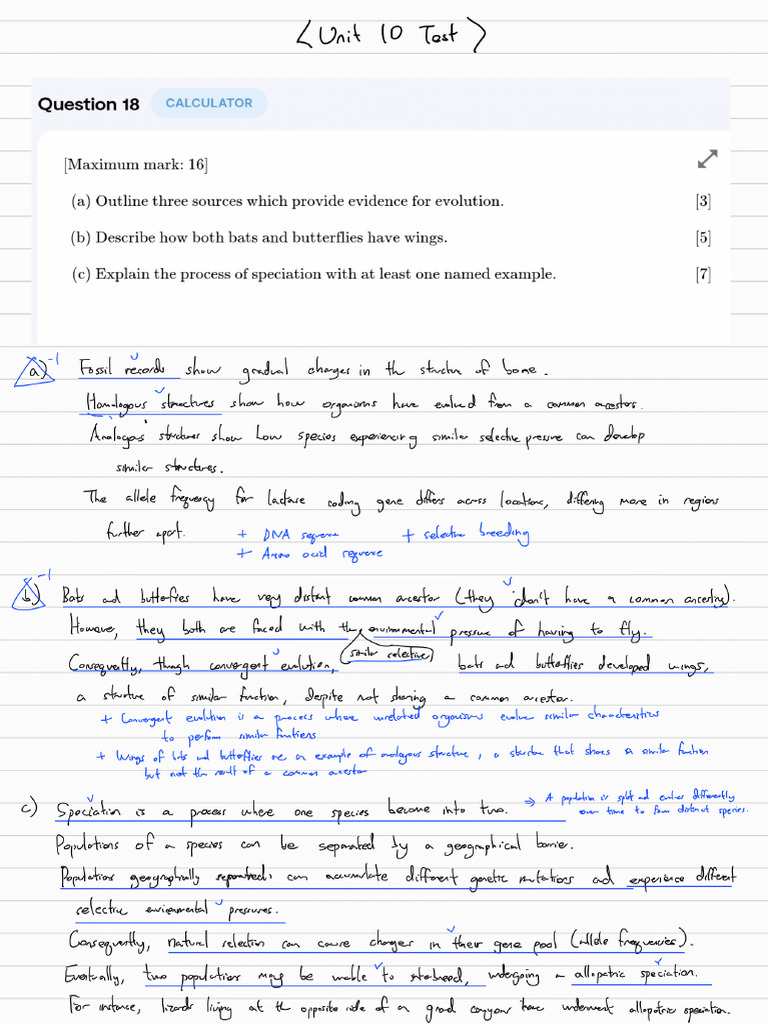 <Unit 10 Test>
Question 18 CALCULATOR
[Maximum mark: 16]
(a) Outline three sources which provide evidence for evolution. [3]
(b) Describe how both bats and butterflies have wings. [5]
(c) Explain the process of speciation with at least one named example. [7]
a) -1 Fossil records show gradual changes in the structure of bone.
Homologous structures show how organisms have evolved from a common ancestors.
Analogous structures show how species experiencing similar selective pressure can develop
similar structures.
The allele frequency for lactase coding gene differs across locations, differing more in regions
further apart. + DNA sequence + selective breeding
+ Amino acid sequence
b) -1 Bats and butterflies have very distant common ancestor (they don't have a common ancestry).
However, they both are faced with the environmental pressure of having to fly.
similar selective
Consequently, though convergent evolution, bats and butterflies developed wings,
a structure of similar function, despite not sharing a common ancestor.
+ Convergent evolution is a process where unrelated organisms evolve similar characteristics
to perform similar functions
+ Wings of bats and butterflies are an example of analogous structure, a structure that shares a similar function
but not the result of a common ancestor
c) Speciation is a process where one species become into two. ⇒ A population is split and evolves differently
over time to form distinct species.
Populations of a species can be separated by a geographical barrier.
Populations geographically separated, can accumulate different genetic mutations and experience different
selective environmental pressures.
Consequently, natural selection can cause changes in their gene pool (allele frequencies).
Eventually, two populations may be unable to interbreed, undergoing a allopatric speciation.
For instance, lizards living at the opposite side of a grand canyon have underwent allopatric speciation.